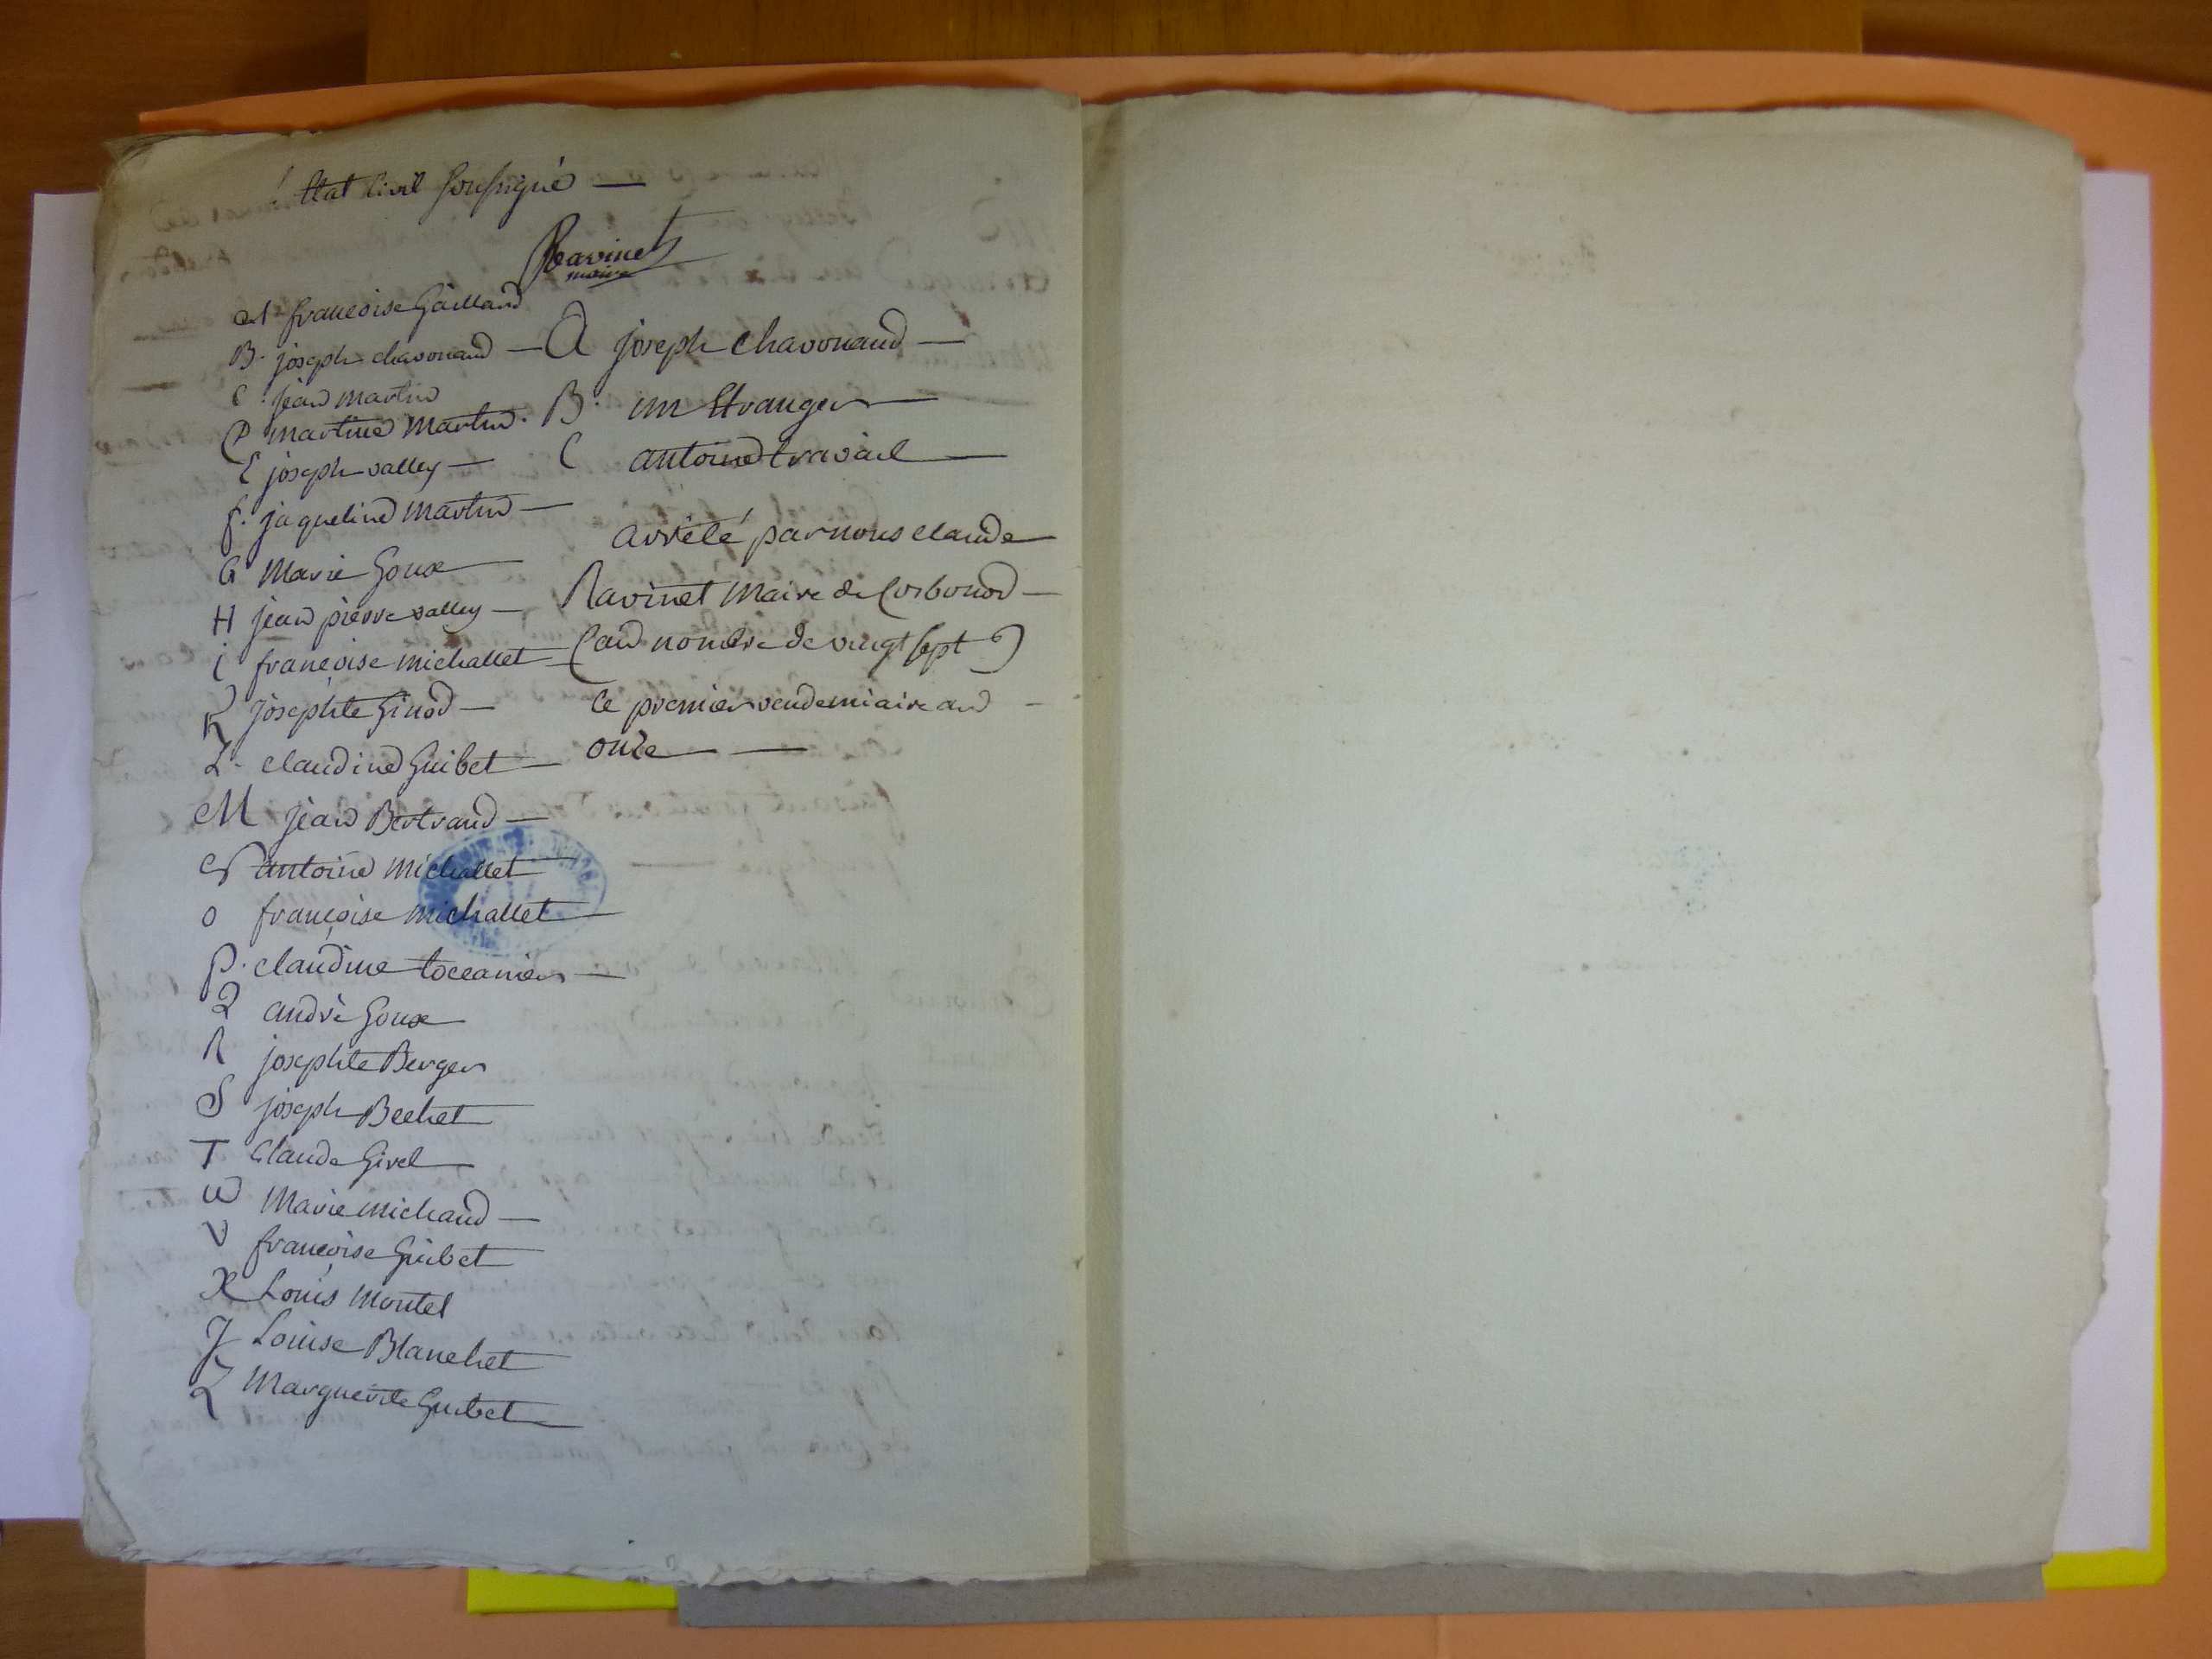 l'Etat Civil Soussigné —
Ravinet
maire
A françoise Gaillard
B. joseph chavonand —
C. jean martin
D martine martin.
E joseph valley —
f. jaqueline martin —
G Marie Goux
H jean pierre valley —
i françoise michallet —
K josephte Ginod —
L. claudine Guibet —
M jean Bertrand —
N antoine michallet
O françoise michallet —
P. claudine toccanier —
Q andré Goux
R josephte Berger
S joseph Bechet
T Claude Givel
U Marie michaud —
V françoise Guibet
X Louis Montel
Y Louise Blanchet
Z Marguerite Guibet
A joseph Chavonand —
B. un Etranger —
C antoine travail —
arrêté par nous claude
Ravinet Maire de Corbonod —
(au nombre de vingt sept)
le premier vendemiaire an —
onze — —